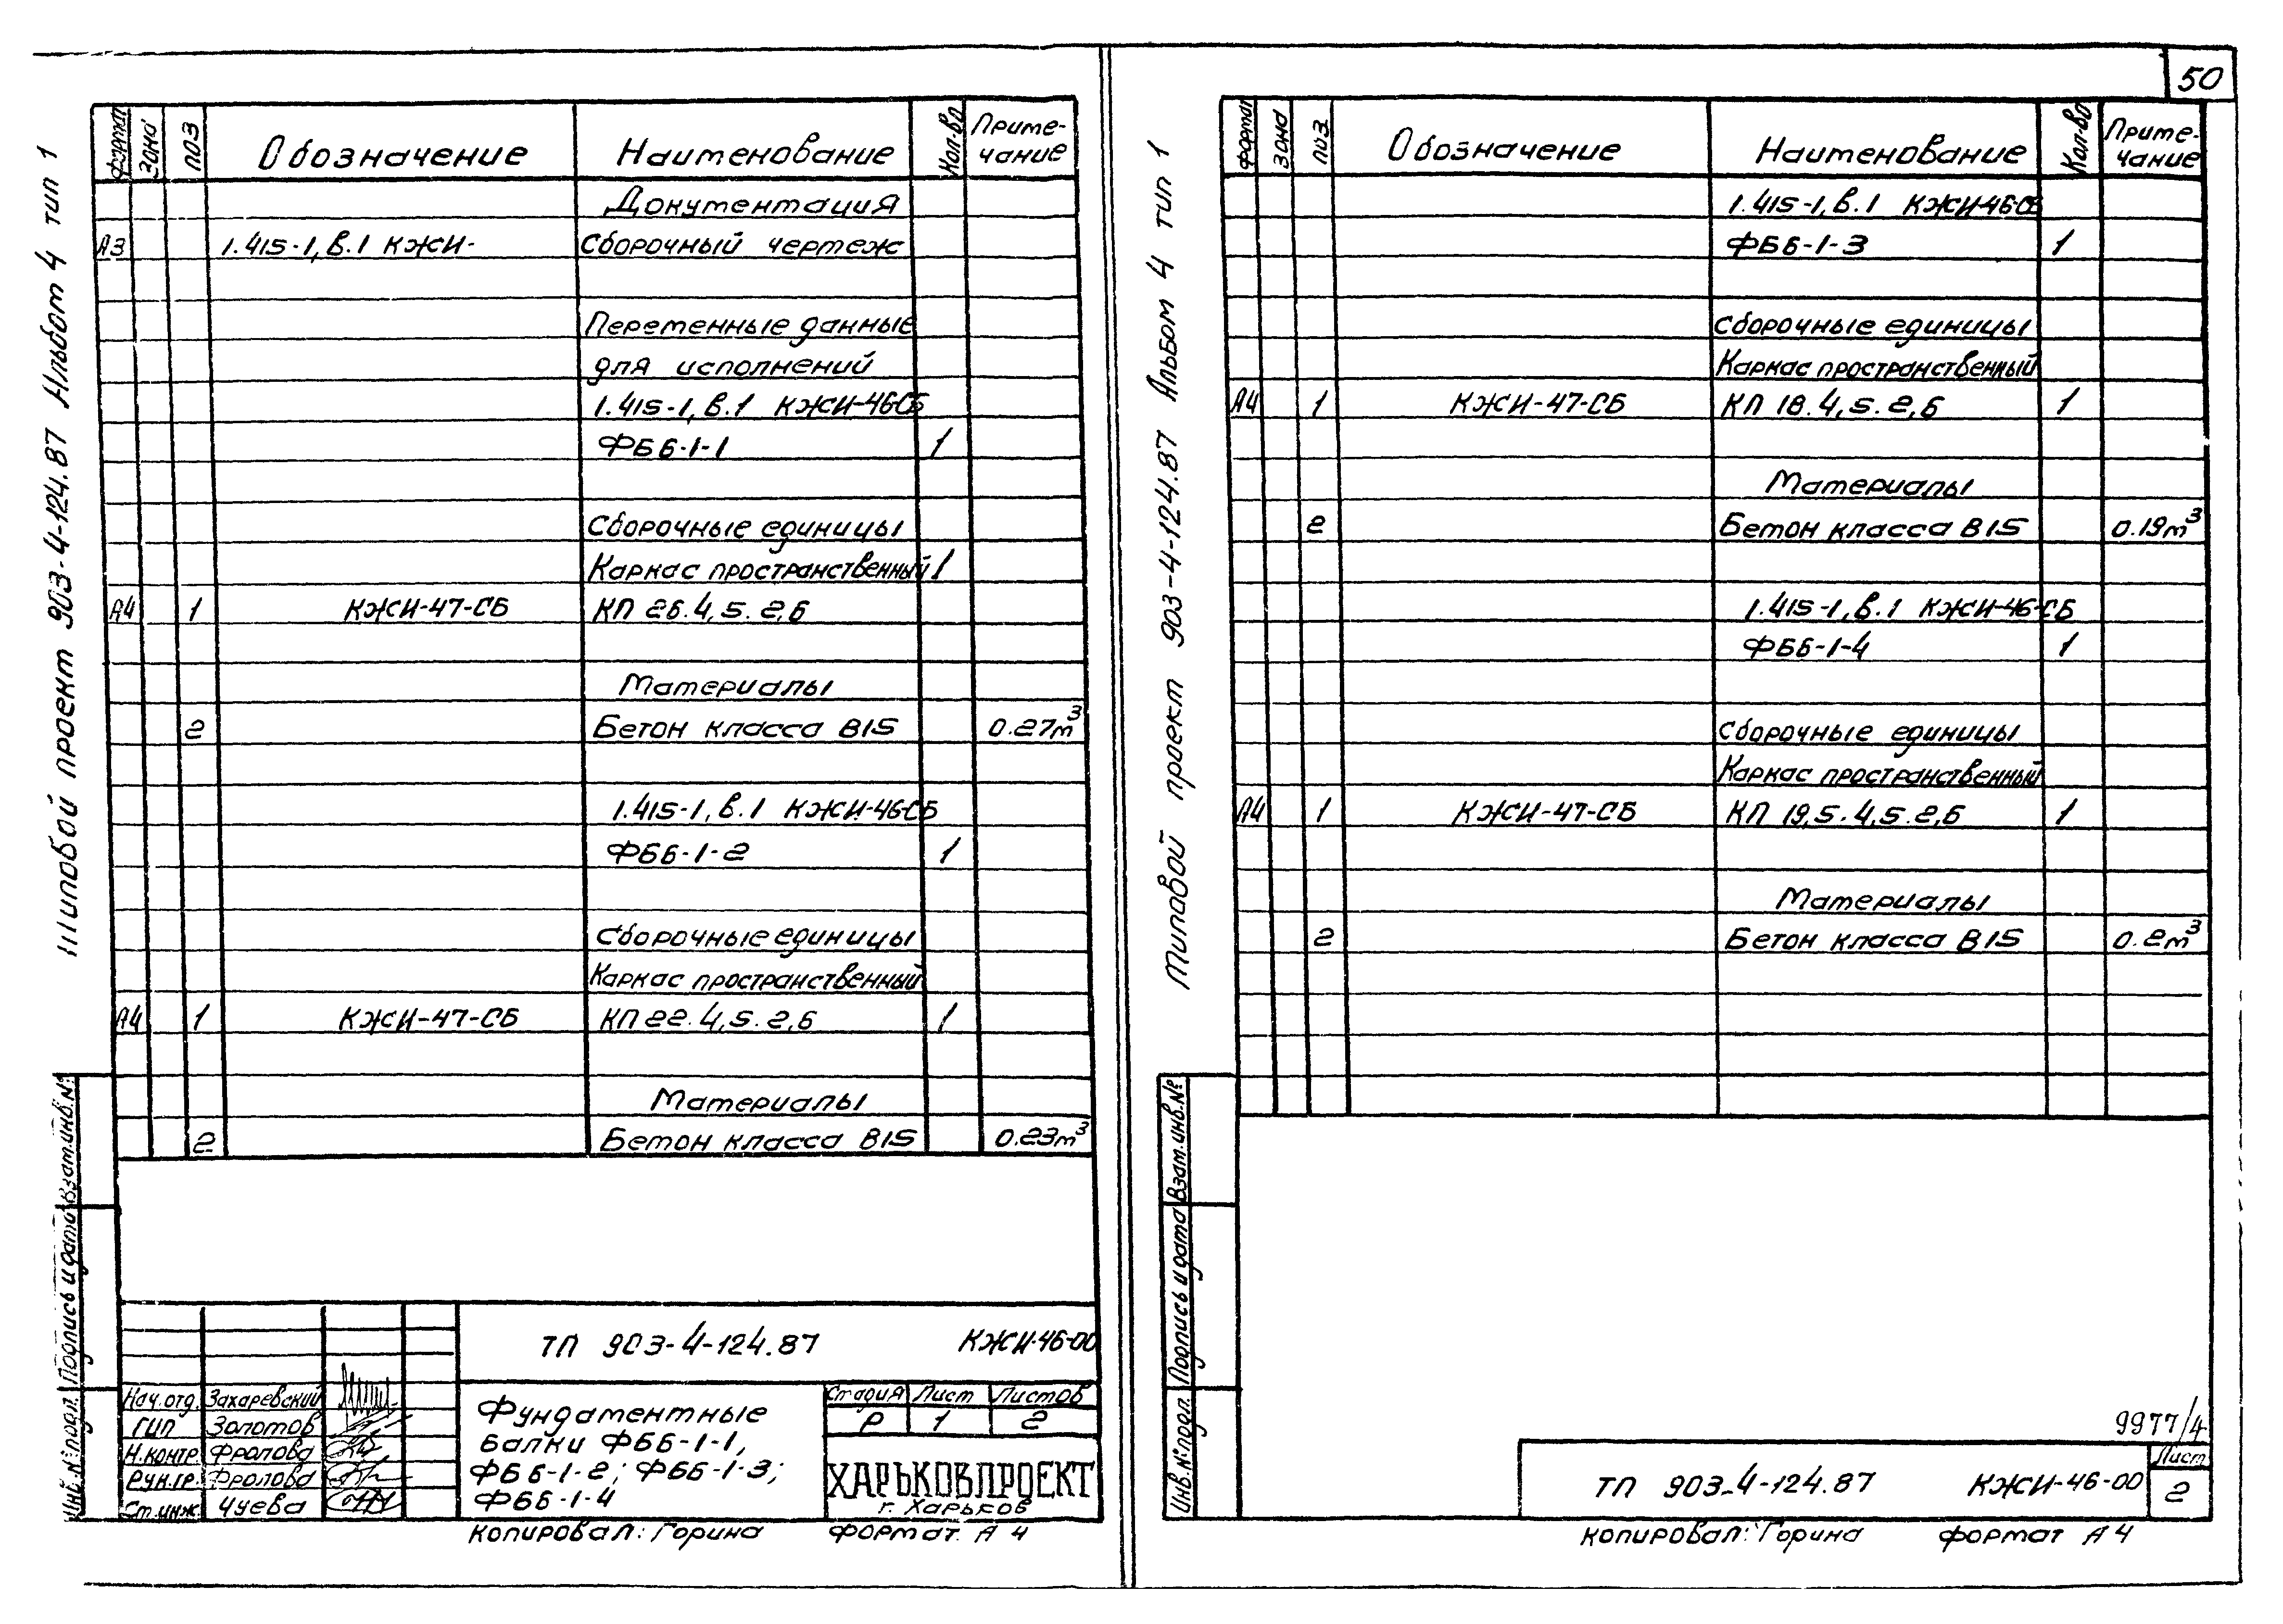 50
Типовой проект 903-4-124.87 Альбом 4 тип 1
Формат Зона Поз Обозначение Наименование Кол-во Приме-
чание
Документация
А3 1.415-1, в.1 КЖИ- Сборочный чертеж
Переменные данные
для исполнений
1.415-1, в.1 КЖИ-46СБ
ФБ6-1-1 1
Сборочные единицы
Каркас пространственный 1
А4 1 КЖИ-47-СБ КП 26.4,5.2,6
Материалы
2 Бетон класса В15 0.27м³
1.415-1, в.1 КЖИ-46СБ
ФБ6-1-2 1
Сборочные единицы
Каркас пространственный
А4 1 КЖИ-47-СБ КП 22.4,5.2,6 1
Материалы
2 Бетон класса В15 0.23м³
Инв.№ подл. Подпись и дата Взам.инв.№
ТП 903-4-124.87 КЖИ-46-00
Нач.отд. Захаревский
ГИП Золотов
Н.контр. Фролова
Рук.гр. Фролова
Ст.инж. Чуева
Фундаментные
балки ФБ6-1-1,
ФБ6-1-2; ФБ6-1-3;
ФБ6-1-4
Стадия Лист Листов
Р 1 2
ХАРЬКОВПРОЕКТ
г. Харьков
копировал: Горина формат. А4
Типовой проект 903-4-124.87 Альбом 4 тип 1
Формат Зона Поз Обозначение Наименование Кол-во Приме-
чание
1.415-1, в.1 КЖИ-46-СБ
ФБ6-1-3 1
Сборочные единицы
Каркас пространственный
А4 1 КЖИ-47-СБ КП 18.4,5.2,6 1
Материалы
2 Бетон класса В15 0.19м³
1.415-1, в.1 КЖИ-46-СБ
ФБ6-1-4 1
Сборочные единицы
Каркас пространственный
А4 1 КЖИ-47-СБ КП 19,5.4,5.2,6 1
Материалы
2 Бетон класса В15 0.2м³
Инв.№ подл. Подпись и дата Взам.инв.№
9977/4
ТП 903-4-124.87 КЖИ-46-00 Лист
2
копировал: Горина формат А4